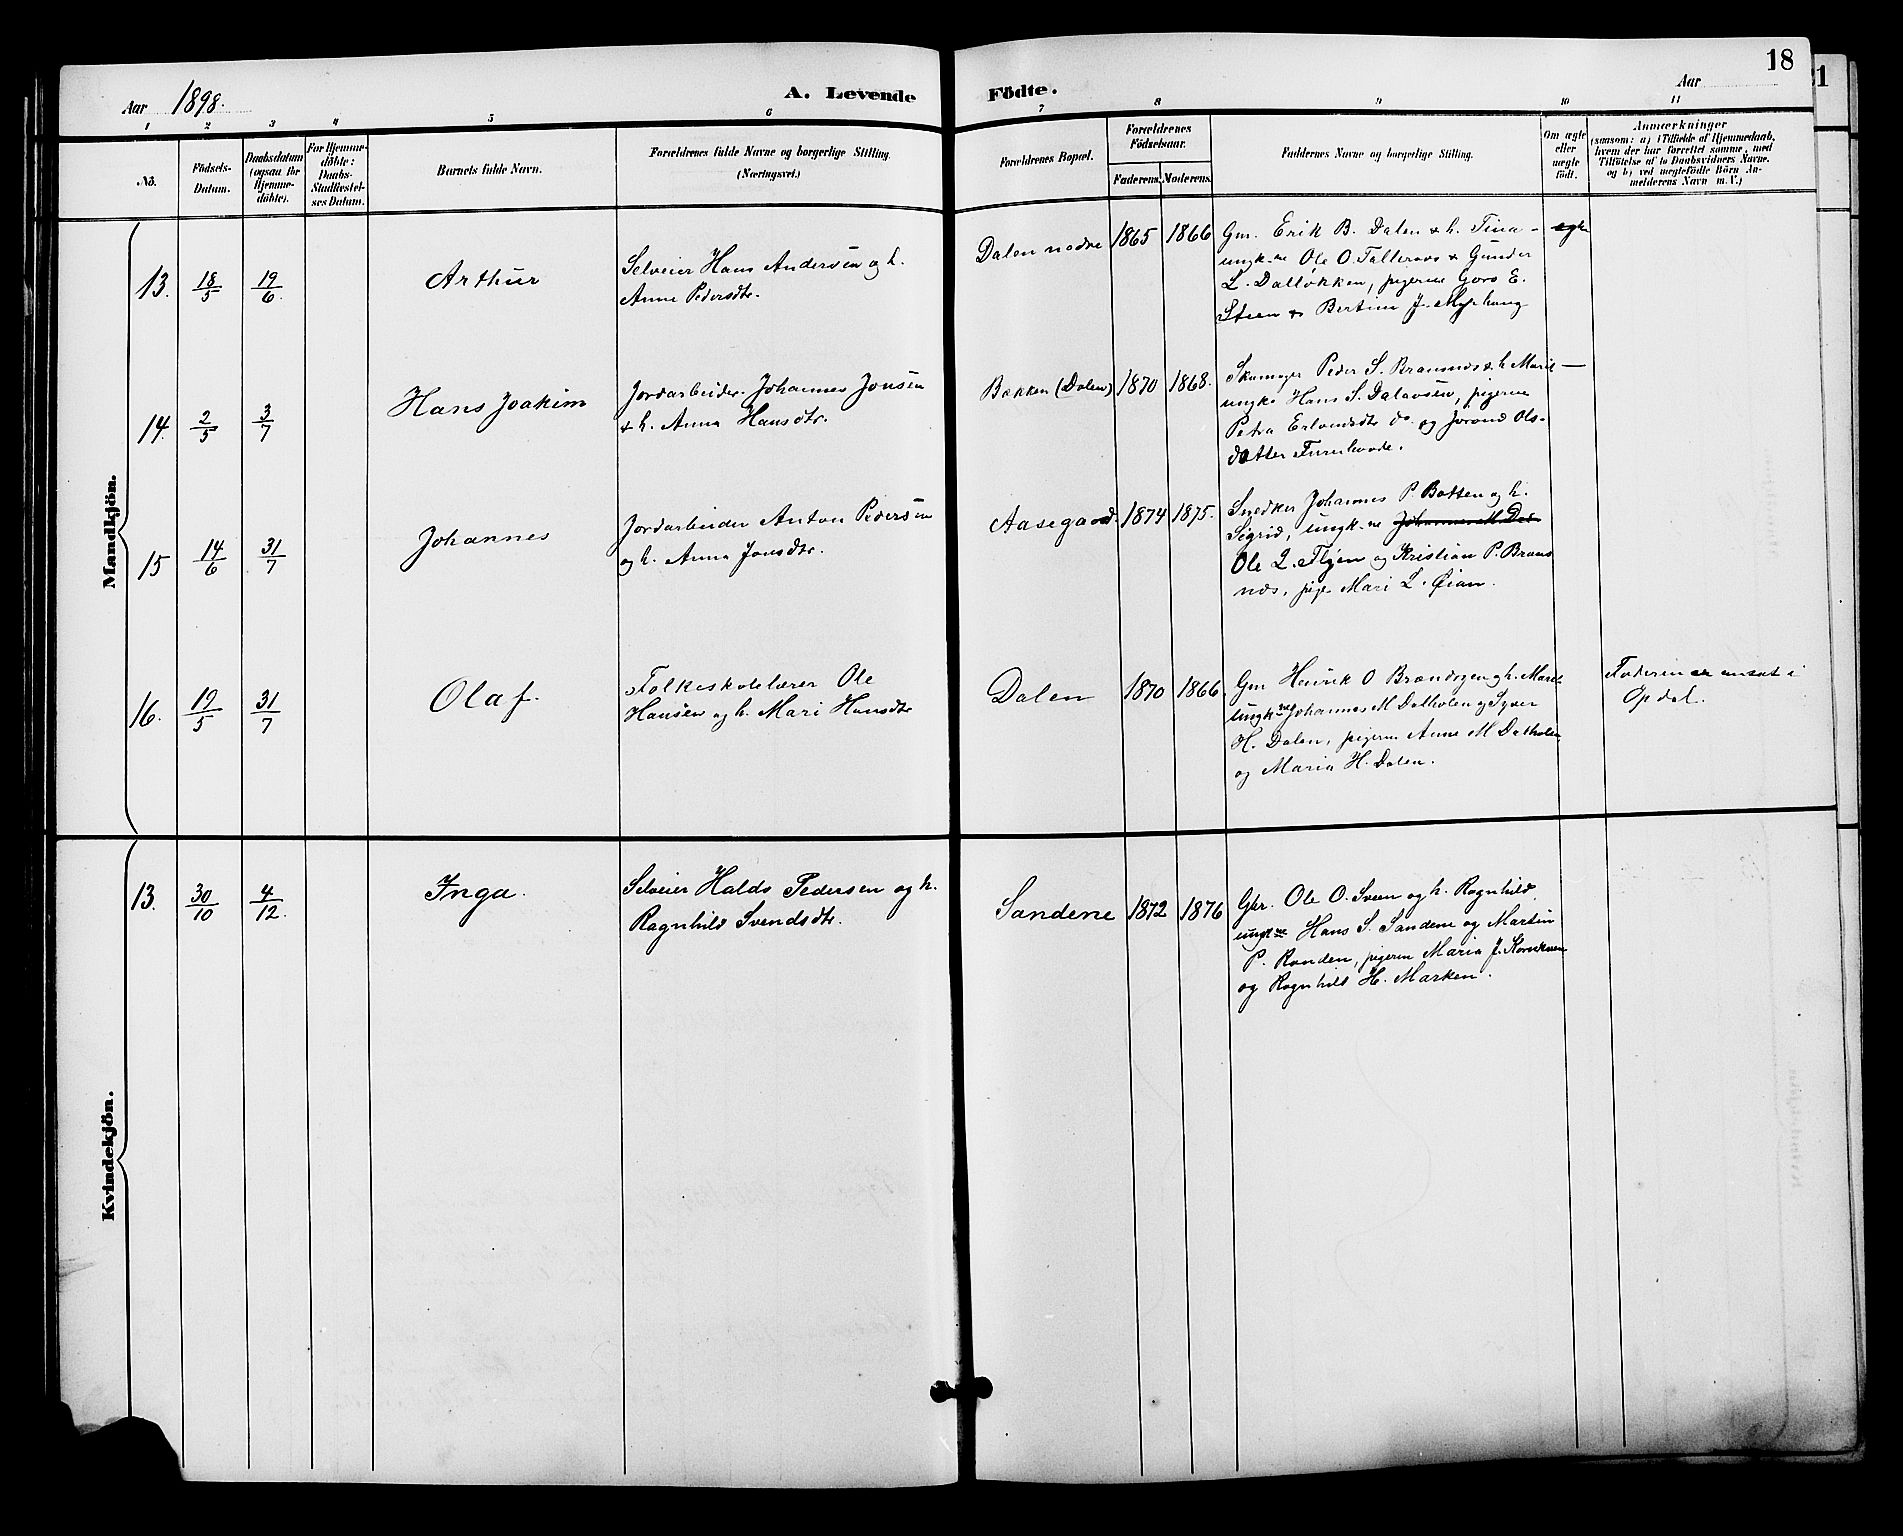 Aar 1898.
A. Levende Födte.
18
Aar
1 2 3 4 5 6 7 8 9 10 11
No.
Födsels-
Datum.
Daabsdatum
(ogsaa for
Hjemme-
döbte).
For Hjemme-
döbte:
Daabs-
Stadfæstel-
ses Datum.
Barnets fulde Navn.
Forældrenes fulde Navne og borgerlige Stilling.
(Næringsvei.)
Forældrenes Bopæl.
Forældrenes
Födselsaar.
Faderens. Moderens.
Faddernes Navne og borgerlige Stilling.
Om ægte
eller
uægte
födt.
Anmærkninger
(saasom: a) i Tilfælde af Hjemmedaab,
hvem der har forrettet samme, med
Tilföielse af to Daabsvidners Navne,
og b) ved uægtefödte Börn An-
melderens Navn m. V.)
Mandkjön.
13. 18/5 19/6.
Arthur
Selveier Hans Andersen og h.
Anne Pedersdtr.
Dalen nedre
1865 1866
Gm. Erik B. Dalen & h. Tina -
ungk-ne Ole O. Talleraas & Gunder
L. Dalløkken, pigerne Goro E.
Steen & Bertine J. Myrhaug
egte
14. 2/5 3/7
Hans Joakim
Jordarbeider Johannes Jonsen
& h. Anna Hansdtr.
Bækken (Dalen)
1870 1868.
Skomager Peder S. Bramnæs & h. Marit
ungk. Hans S. Dalavsen, pigerne
Petra Erlendsdtr do. og Jorand Ols-
datter Furuhovde.
—
15 14/6 31/7
Johannes
Jordarbeider Anton Pedersen
og h. Anna Jonsdtr.
Aasegaard.
1874 1875.
Snedker Johannes P. Botten og h.
Sigrid, ungk-ne Johannes M. Dal
Ole L. Fløen og Kristian P. Bram
næs, pige Mari L. Øian.
16. 19/5 31/7
Olaf.
Folkeskolelærer Ole
Hansen og h. Mari Hansdtr
Dalen
1870 1866
Gm Henrik O Brændsgen og h. Marit
ungkne Johannes M Dalholen og Syver
H. Dalen, pigerne Anne M Dalholen
og Maria H. Dalen.
Faderen er ansat i
Opdal.
Kvindekjön.
13. 30/10 4/12.
Inga.
Selveier Halds Pedersen og h.
Ragnhild Svendsdtr.
Sandene
1872 1876
Gbr. Ole O. Sveen og h. Ragnhild.
ungkne Hans S. Sandene og Martin
P. Randen, pigerne Maria J.
og Ragnhild H. Marken.